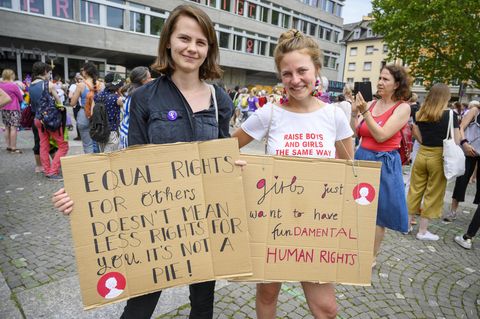 EQUAL RIGHTS
FOR others
DOESN'T MEAN
LESS RIGHTS FOR
you. IT'S NOT A
PIE!
RAISE BOYS
AND GIRLS
THE SAME WAY
girls just
want to have
funDAMENTAL
HUMAN RIGHTS